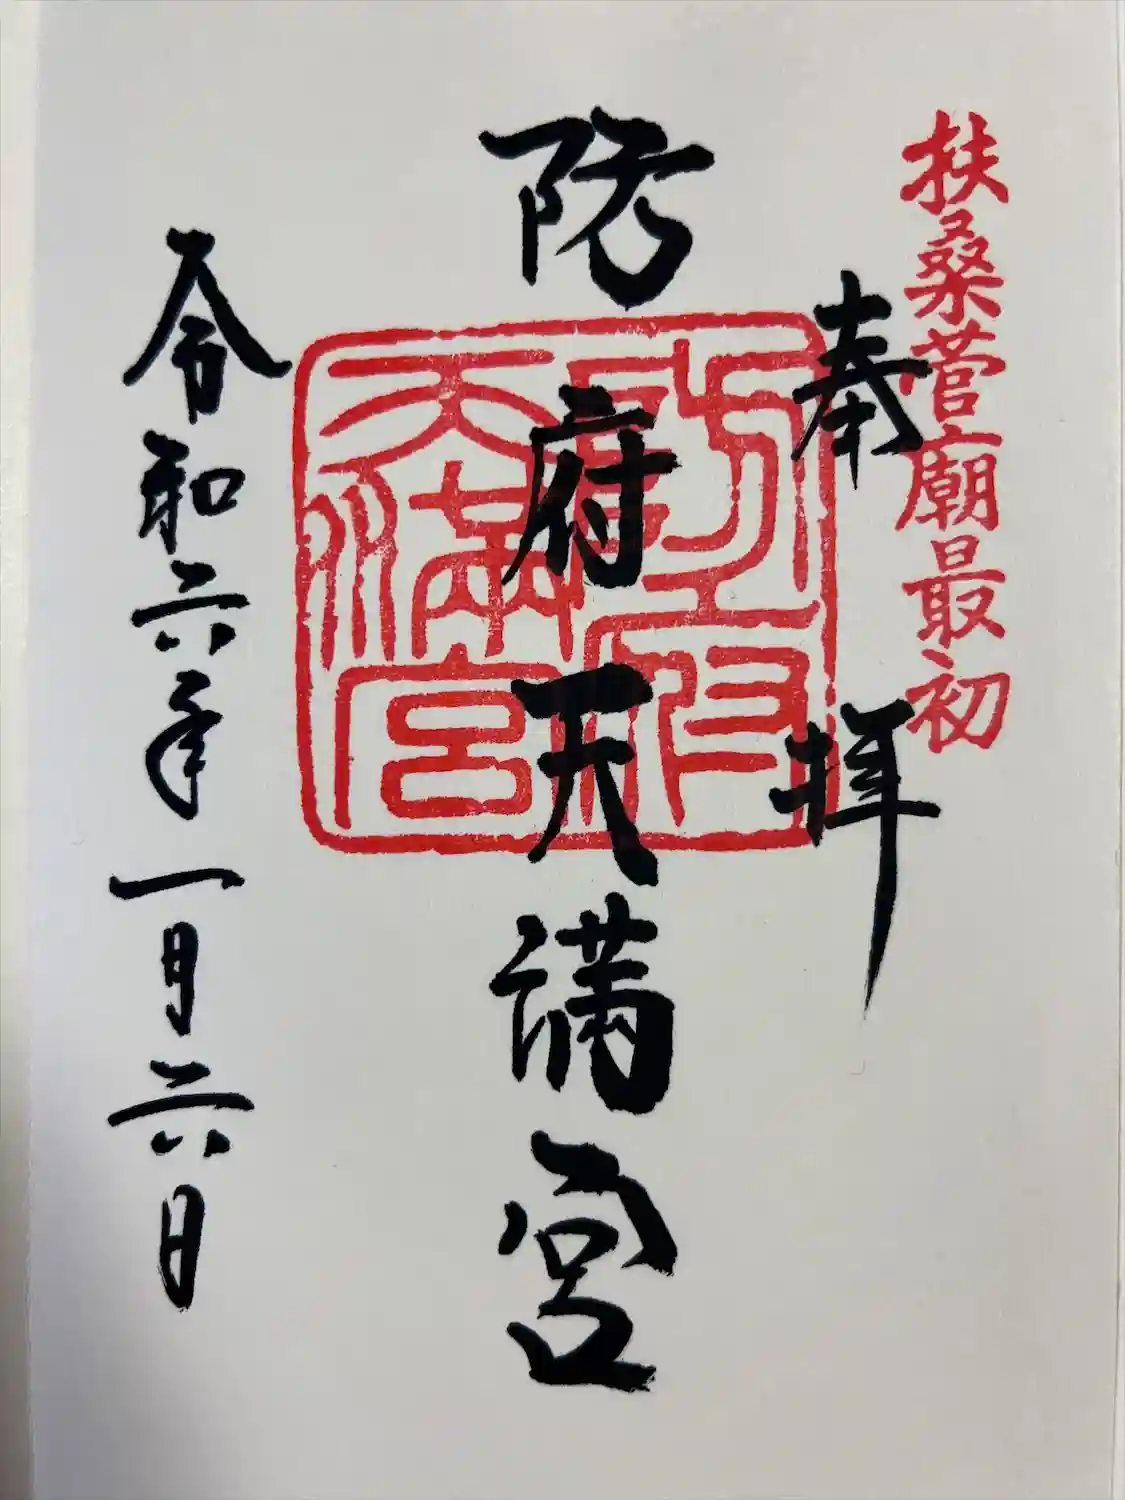 扶桑菅廟最初
奉拝
防府天満宮
防府天満宮
令和六年一月六日